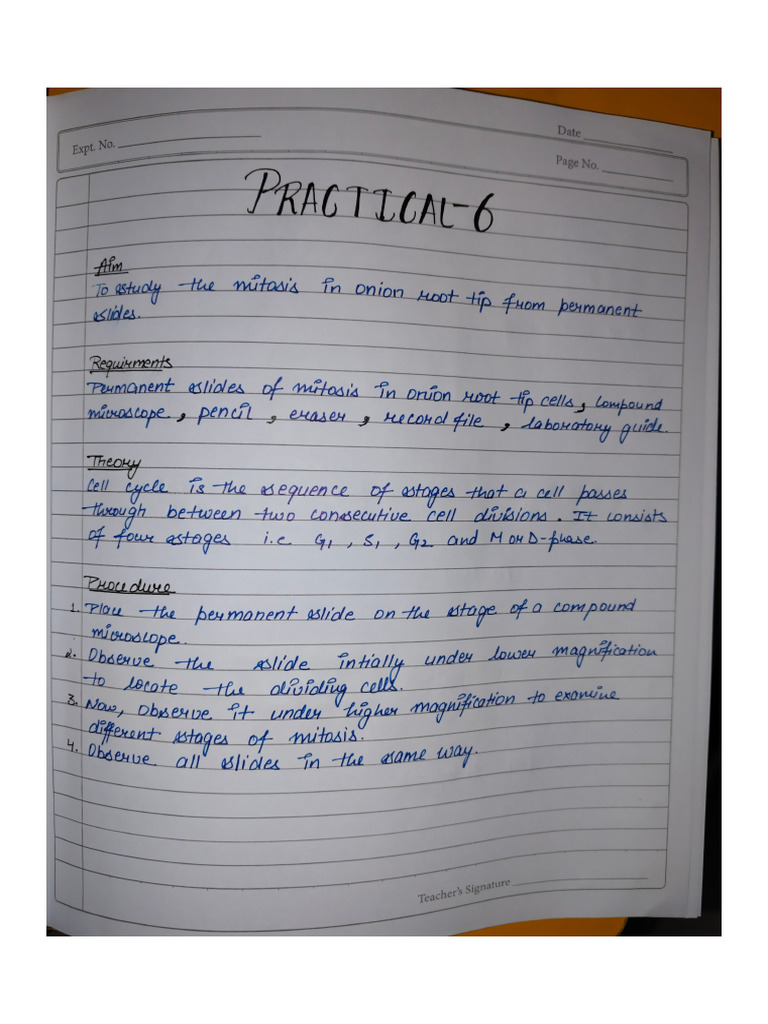 Expt. No.
Date
Page No.
PRACTICAL-6
Aim
To study the mitosis in onion root tip from permanent
slides.
Requirments
Permanent slides of mitosis in onion root tip cells, compound
microscope, pencil, eraser, record file, laboratory guide.
Theory
Cell cycle is the sequence of stages that a cell passes
through between two consecutive cell divisions. It consists
of four stages i.e G1, S1, G2 and M or D-phase.
Procedure
1. Place the permanent slide on the stage of a compound
microscope.
2. Observe the slide intially under lower magnification
to locate the dividing cells.
3. Now, observe it under higher magnification to examine
different stages of mitosis.
4. Observe all slides in the same way.
Teacher's Signature